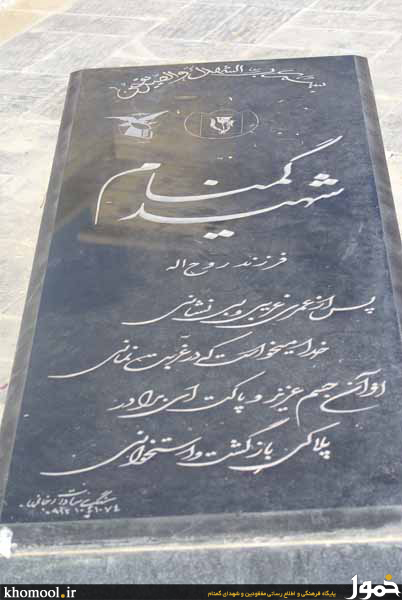 شهید گمنام
فرزند روح اله
پس از عمری غریبی و بی نشانی
خدا میخواست که در غربت نمانی
از آن جسم عزیز و پاکت ای برادر
پلاکی بازگشت و استخوانی
khomool.ir
پایگاه فرهنگی و اطلاع رسانی مفقودین و شهدای گمنام
خمول